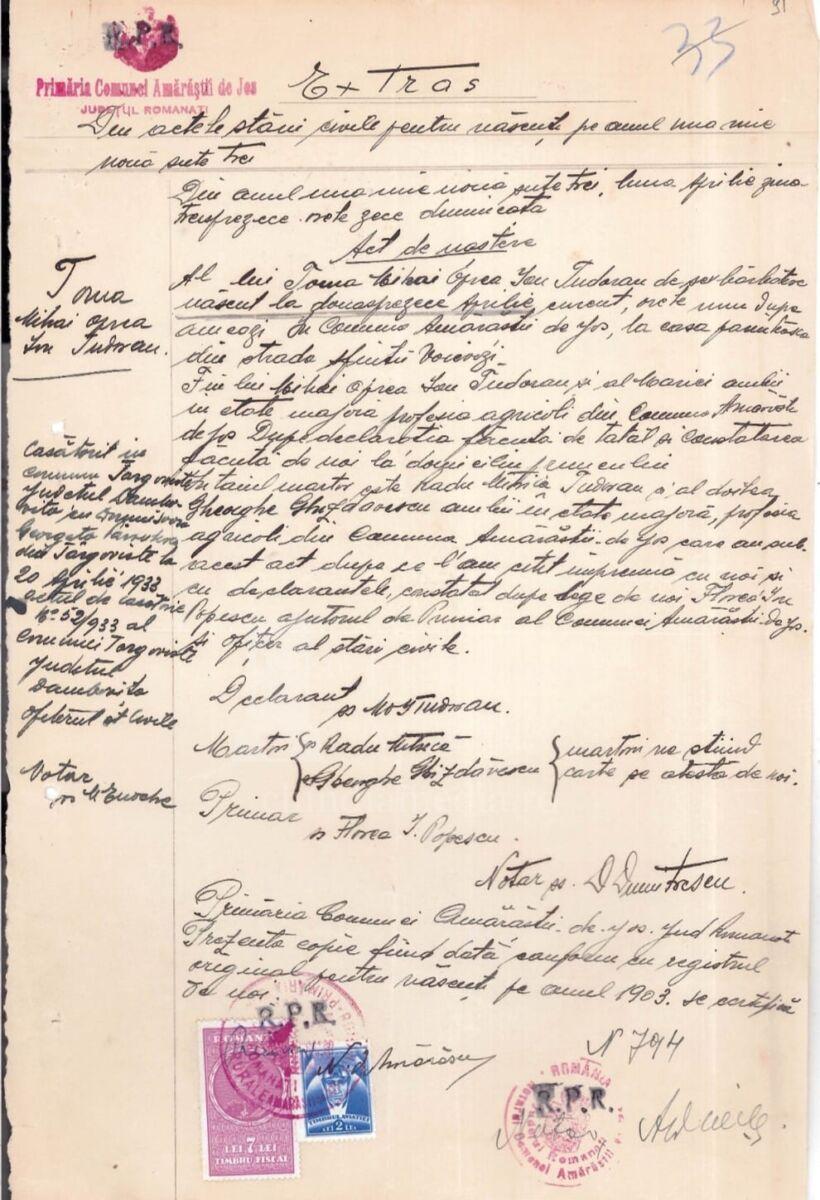 31
33
R.P.R.
Primăria Comunei Amărăștii de Jos
JUDEȚUL ROMANAȚI
Extras
Din actele stării civile pentru născuți pe anul una mie
nouă sute trei
Din anul una mie nouă sute trei, luna Aprilie ziua
treisprezece orele zece dimineața
Act de naștere
Al lui Toma Mihai Oprea Ion Tudoran de sex bărbătesc
născut la douăsprezece Aprilie curent, orele unu dupe
ameazi în Comuna Amărăștii de Jos, la casa părintească
din strada Sfinții Voievozi.
Fiu lui Mihai Oprea Ion Tudoran, și al Mariei ambii
în etate majoră profesia agricoli din Comuna Amărăștii
de Jos Dupe declarația făcută de tatăl și Constatarea
făcută de noi la domiciliu pruncului
Întâiul martor este Radu Mitrică Tudoran și al doilea
Gheorghe Ghizdăvescu ambii în etate majoră, profesia
agricoli din Comuna Amărăștii-de-Jos care au sub.
acest act dupe ce l'am citit împreună cu noi și
cu declarantele, constatat dupe lege de noi Florea Ion
Popescu ajutorul de Primar al Comunei Amărăștii-de-Jos.
și ofițer al stării civile.
Toma
Mihai Oprea
Ion Tudoran.
Casătorit în
comuna Targoviste
județul Dambo
vita cu
Georgeta
din Târgoviste la
20 Aprilie 1933
actul de casatorie
No 52/933 al
comunei Targoviste
județul
Dambovita
ofiterul st Civile
Notar
ss M. Enache
Declarant
ss M O I Tudoran.
Martori ss Radu Mitrică
Gheorghe Ghizdăvescu
martori ne știind
carte se atestă de noi.
Primar
ss Florea I. Popescu.
Notar ss. D Dumitrescu.
Primăria Comunei Amărăștii-de-Jos. Jud Romanați
Prezenta copie fiind dată conform cu registrul
original pentru născuți pe anul 1903. se certifică
de noi.
R.P.R.
N 794
ROMANIA
LEI 7 LEI
TIMBRU FISCAL
TIMBRUL AVIAȚIEI
LEI 2 LEI
ROMÂNIA
R.P.R.
Notar